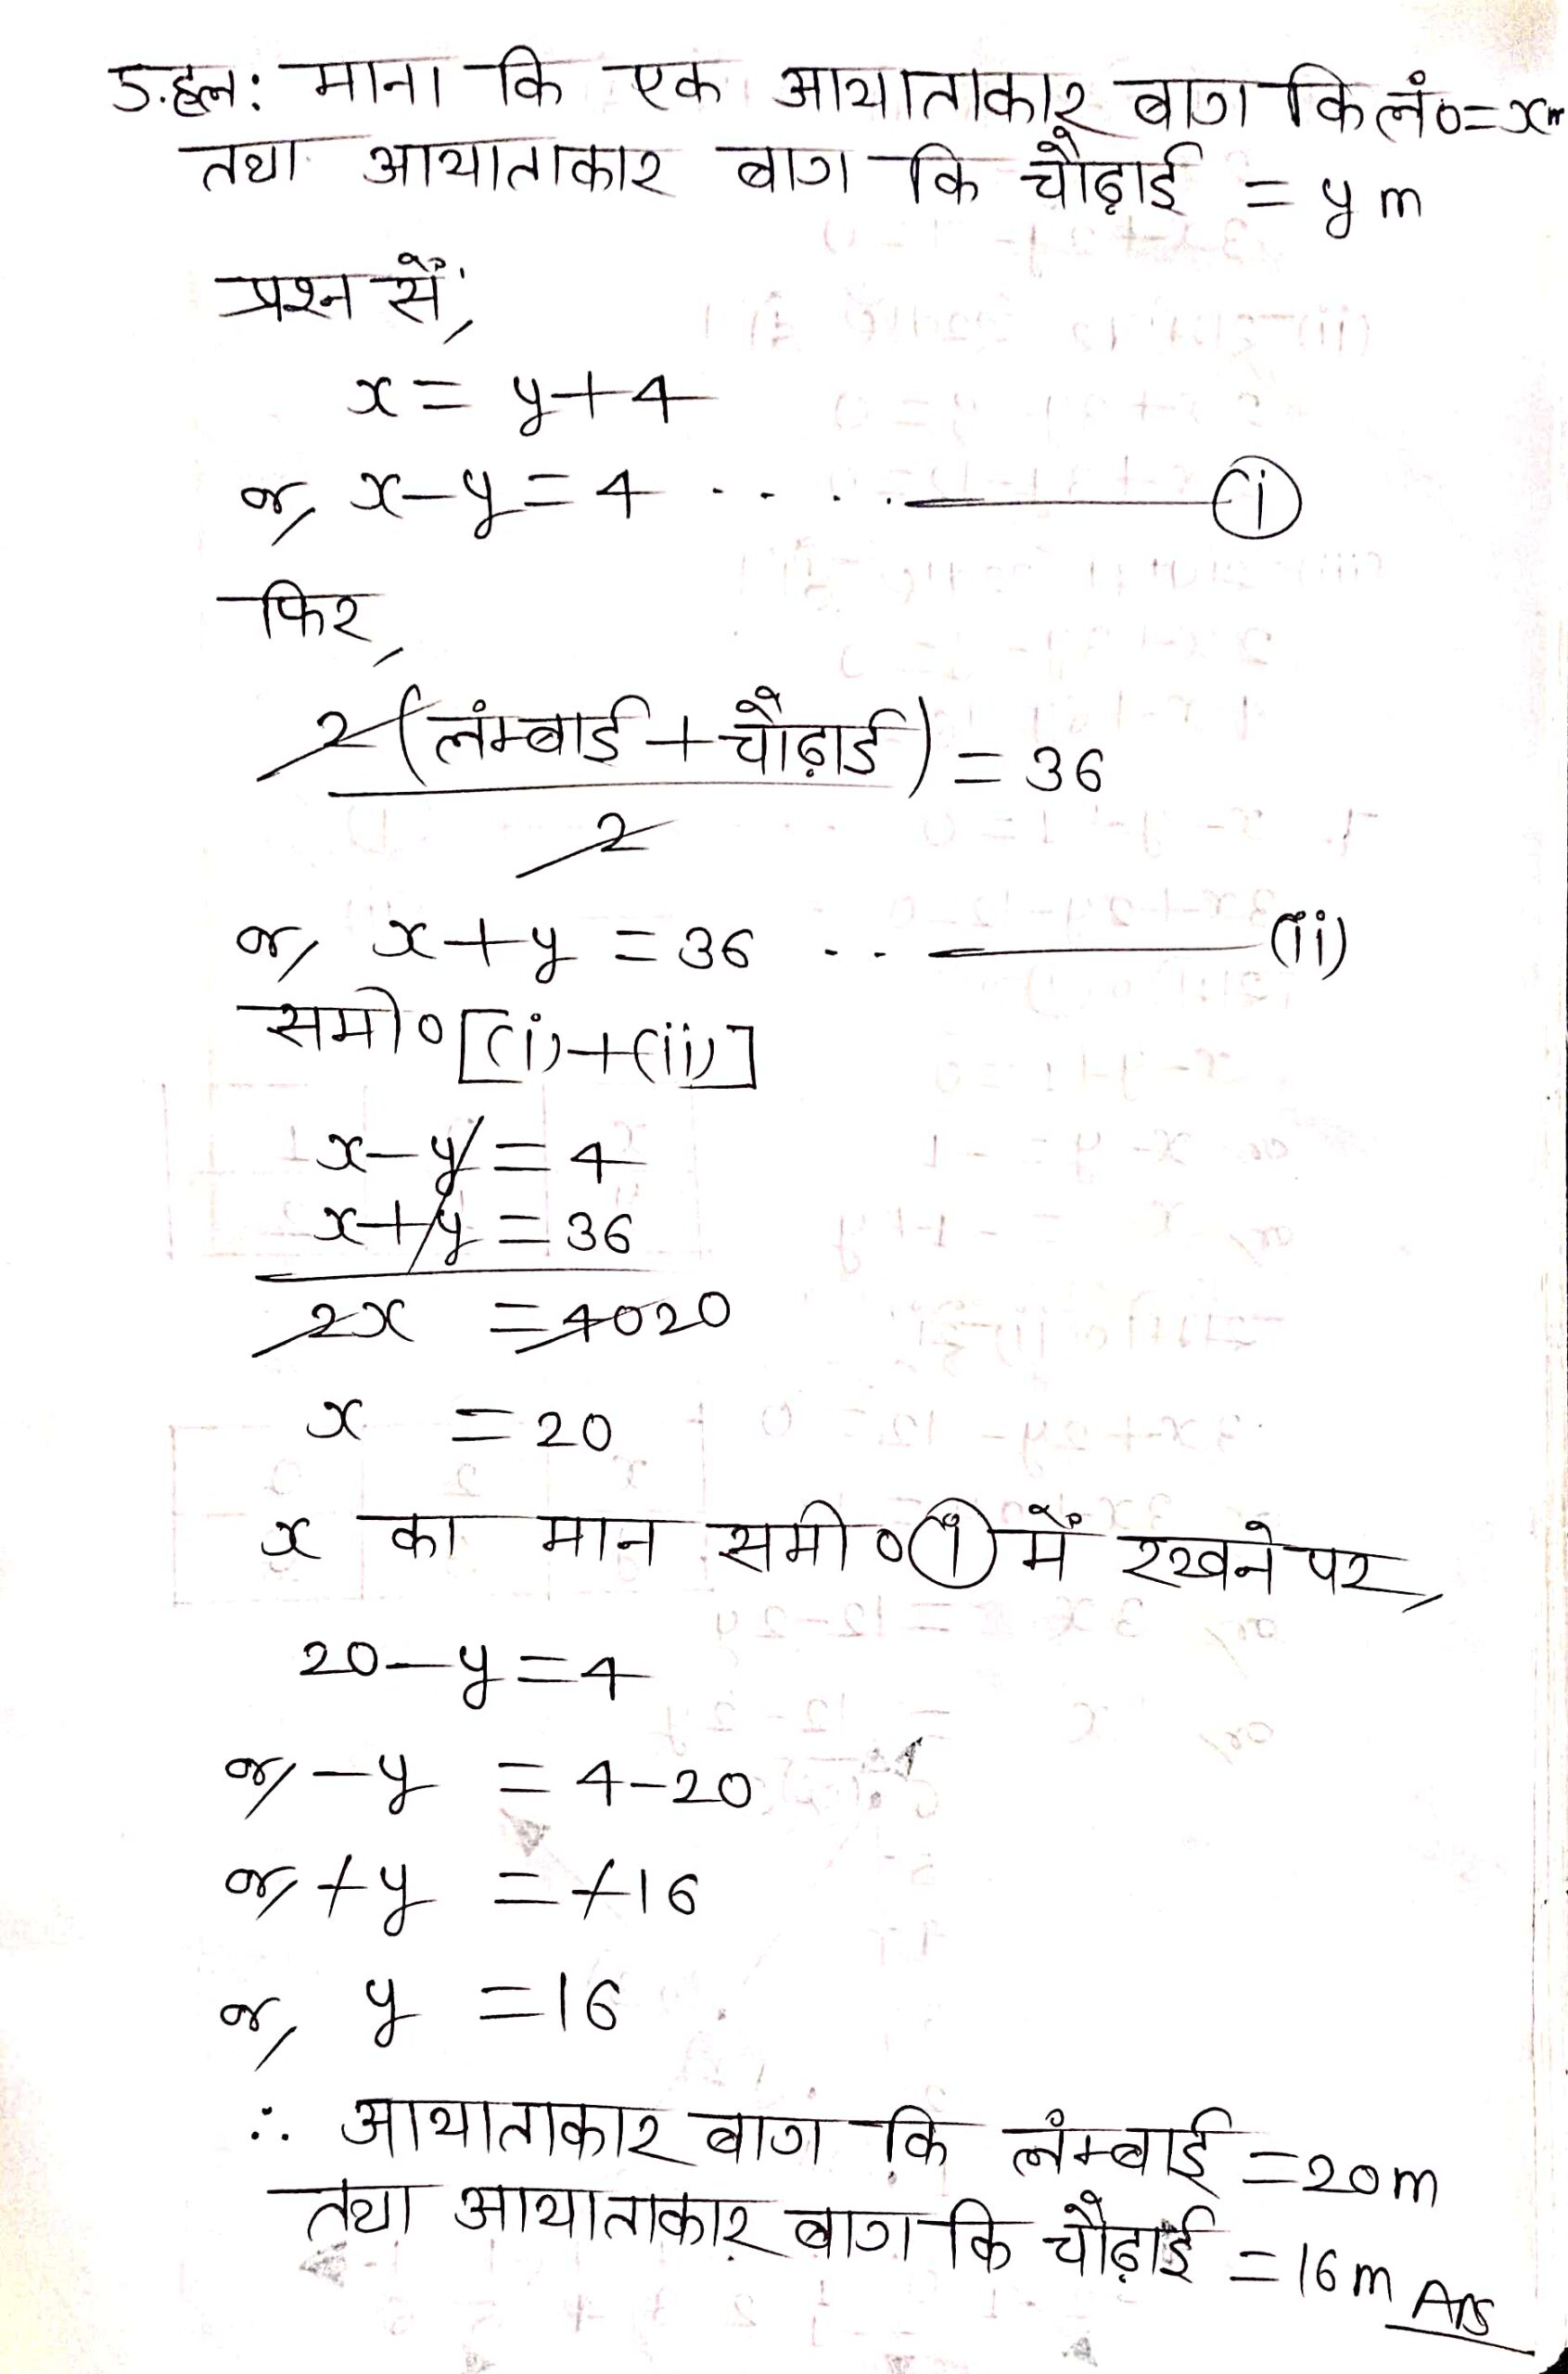 5.हल: माना कि एक आयाताकार बाग कि लं०=xm
तथा आयाताकार बाग कि चौढ़ाई = y m
प्रश्न सें,
x = y+4
or, x-y=4 .. .. ——— (i)
फिर,
2(लंम्बाई+चौढ़ाई) = 36
2
or, x+y = 36 .. ——— (ii)
समी० [(i)+(ii)]
x-y = 4
x+y = 36
2x = 40 20
x = 20
x का मान समी० (i) में रखने पर,
20-y=4
or, -y = 4-20
or, +y = +16
or, y = 16
∴ आयाताकार बाग कि लंम्बाई = 20m
तथा आयाताकार बाग कि चौढ़ाई = 16m Ans